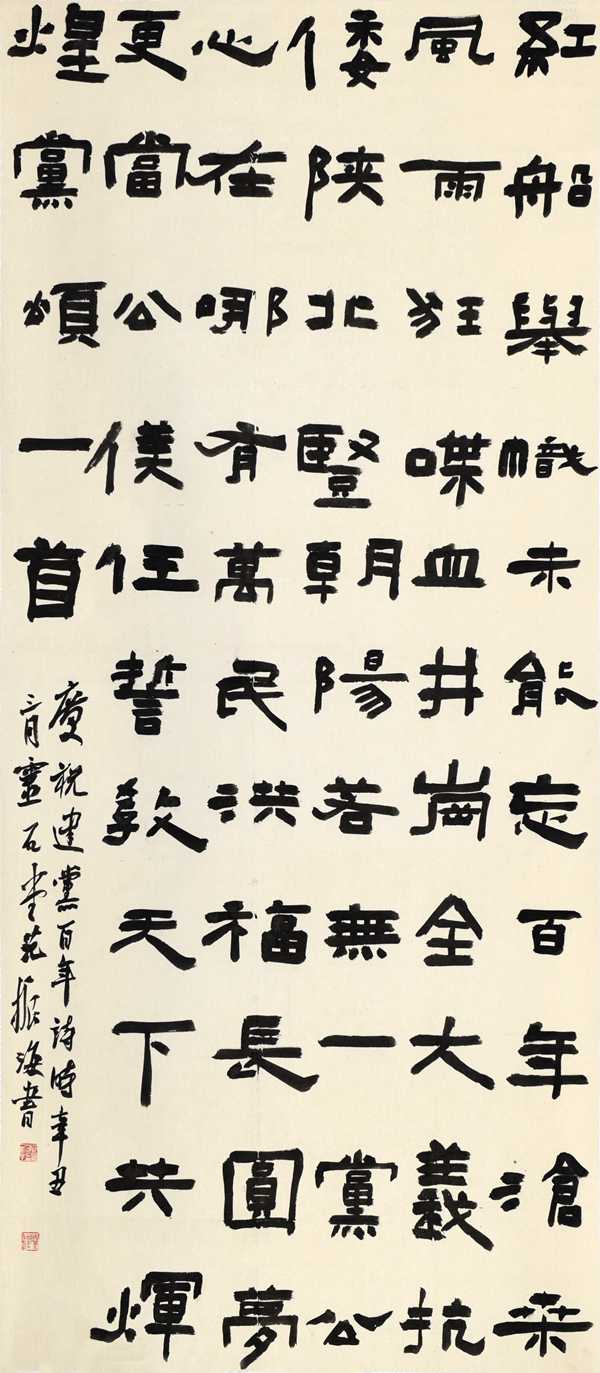 紅船舉幟未能忘百年滄桒
風雨狂喋血井崗全大義抗
倭陝北豎朝陽若無一黨公
心在哪有萬民洪福長圓夢
更當公僕任誓教天下共輝
煌黨頌一首
慶祝建黨百年詩時辛丑
三月靈石堂苑振海書